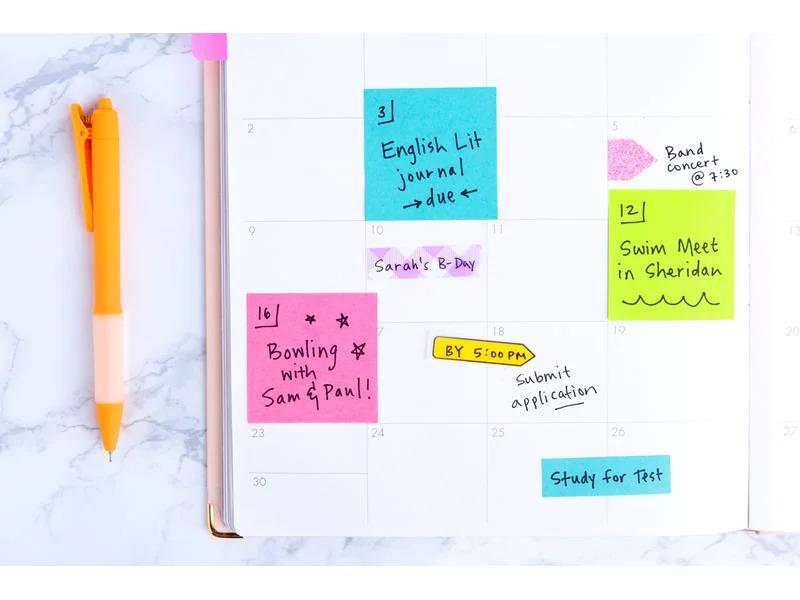 3
English Lit
journal
→due←
2
5
6
Band
concert
@ 7:30
12
Swim Meet
in Sheridan
9
10
11
13
Sarah's B-Day
16
Bowling
with
Sam & Paul!
7
18
19
20
BY 5:00PM
Submit
application
23
24
25
26
27
Study for Test
30